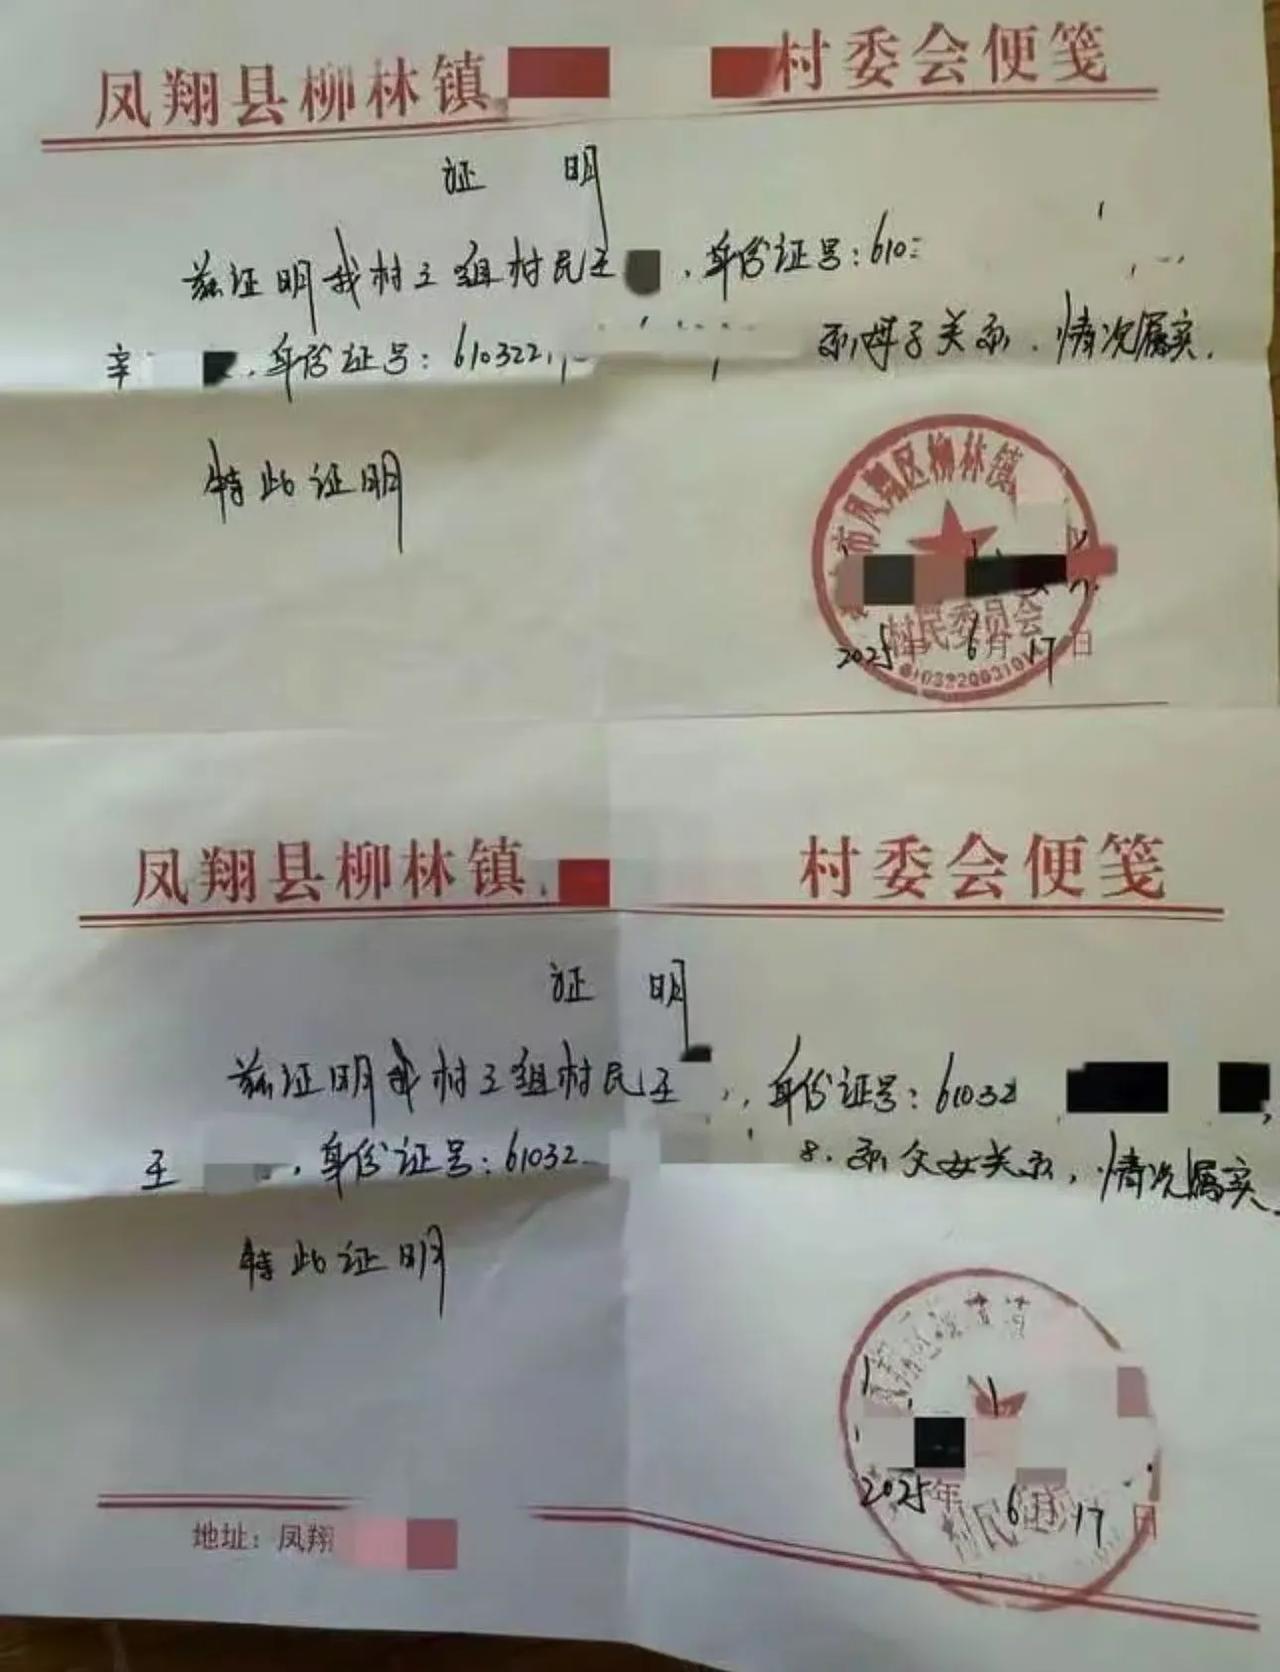 凤翔县柳林镇 村委会便笺
证 明
兹证明我村三组村民王 ，身份证号：610
辛 ，身份证号：610322 系母子关系，情况属实，
特此证明
市凤翔区柳林镇
村民委员会
2025年6月17日
6103220031
凤翔县柳林镇 村委会便笺
证 明
兹证明我村三组村民王 ，身份证号：61032
王 ，身份证号：61032 8，系父女关系，情况属实
特此证明
2025年6月17日
村民
地址：凤翔